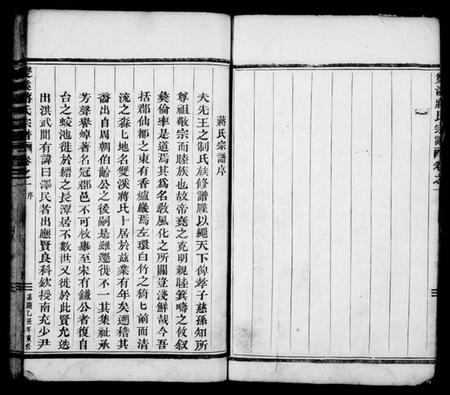 雙溪蔣氏宗譜 卷之一
蔣氏宗譜序
夫先王之制氏族修譜牒以繩天下俾孝子慈孫知所
尊祖敬宗而睦族也故帝堯之克明親睦箕疇之攸叙
彝倫率是道焉其爲名敎風化之所關豈淺鮮哉今吾
括郡仙都之東有香爐巖焉左環白竹之猗匕前面清
流之淼匕地名雙溪蔣氏卜居於兹業有年矣遡稽其
啻出自周朝伯齡公之後嗣是雖遷徙不一其集祉承
芳聲譽焯著名冠郡邑不可枚舉至宋有鎌公者復自
台之蛟池徙於縉之長潭居不數世又徙於此賢允迭
出洪武間有諱曰澤民者出應賢良科欽授南充少尹
雙溪蔣氏宗譜 卷之一 序
嘉慶乙丑年重修